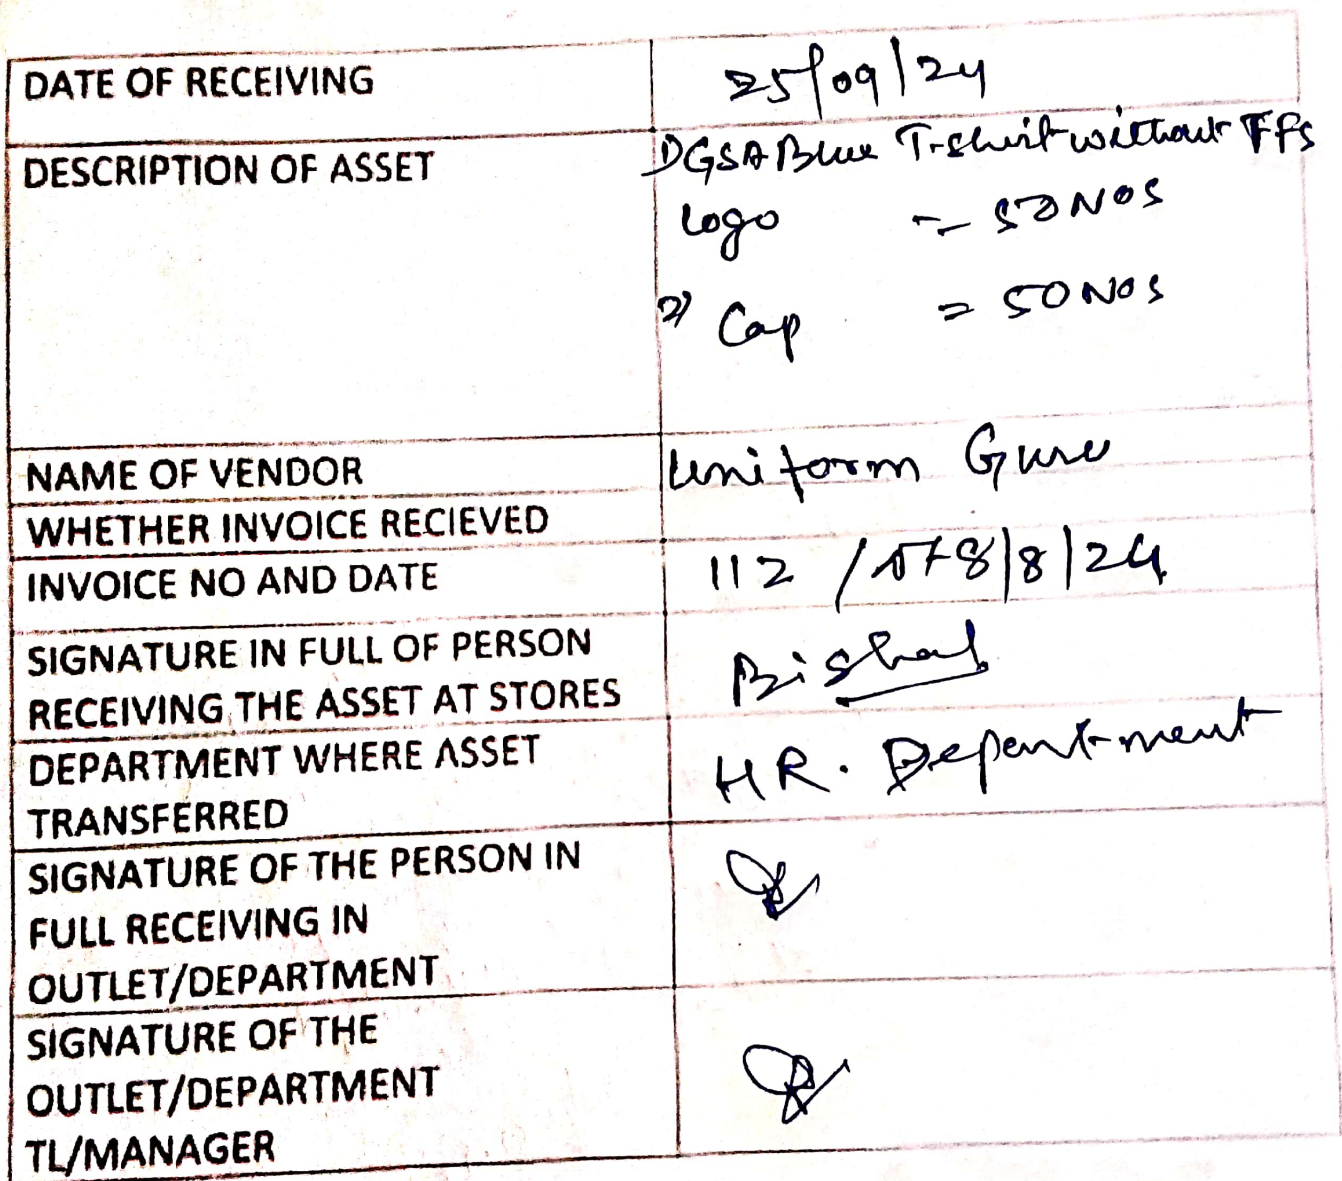 DATE OF RECEIVING 25/09/24
DESCRIPTION OF ASSET DGSA Blue T-shirt without FFs
logo = 50 NOS
2) Cap = 50 NOS
NAME OF VENDOR Uniform Guru
WHETHER INVOICE RECIEVED
INVOICE NO AND DATE 112 / 8/8/24
SIGNATURE IN FULL OF PERSON
RECEIVING THE ASSET AT STORES Bishal
DEPARTMENT WHERE ASSET HR. Department
TRANSFERRED
SIGNATURE OF THE PERSON IN
FULL RECEIVING IN
OUTLET/DEPARTMENT
SIGNATURE OF THE
OUTLET/DEPARTMENT
TL/MANAGER